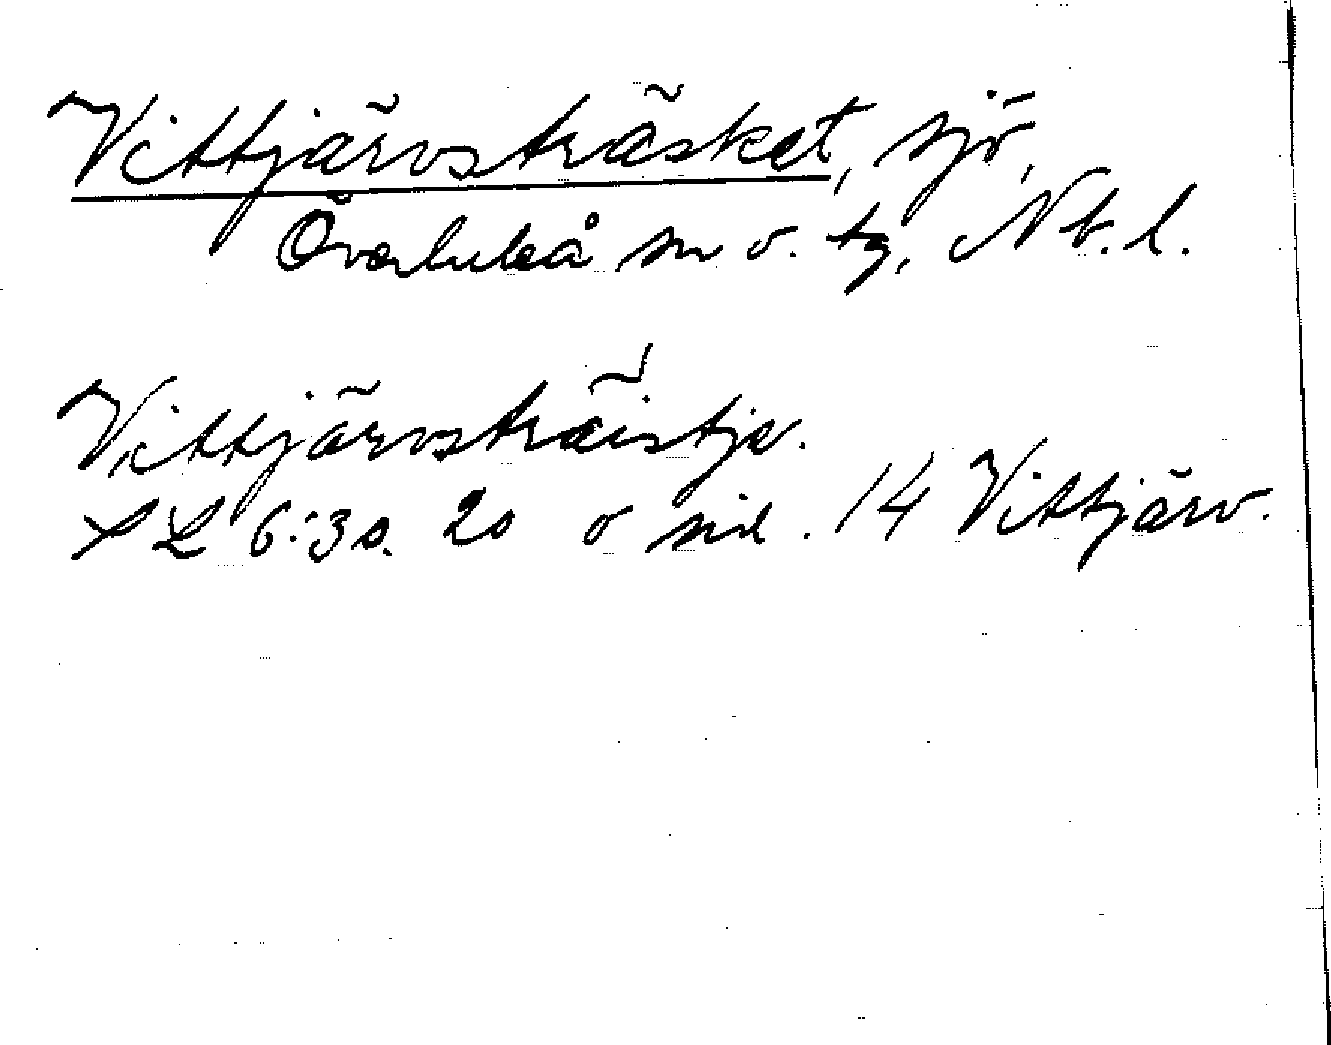 Vittjärvsträsket, sjö,
Överluleå sn o. tg, Nb. l.
Vittjärvsträistje.
XL 6:30. 20 o sid. 14 Vittjärv.